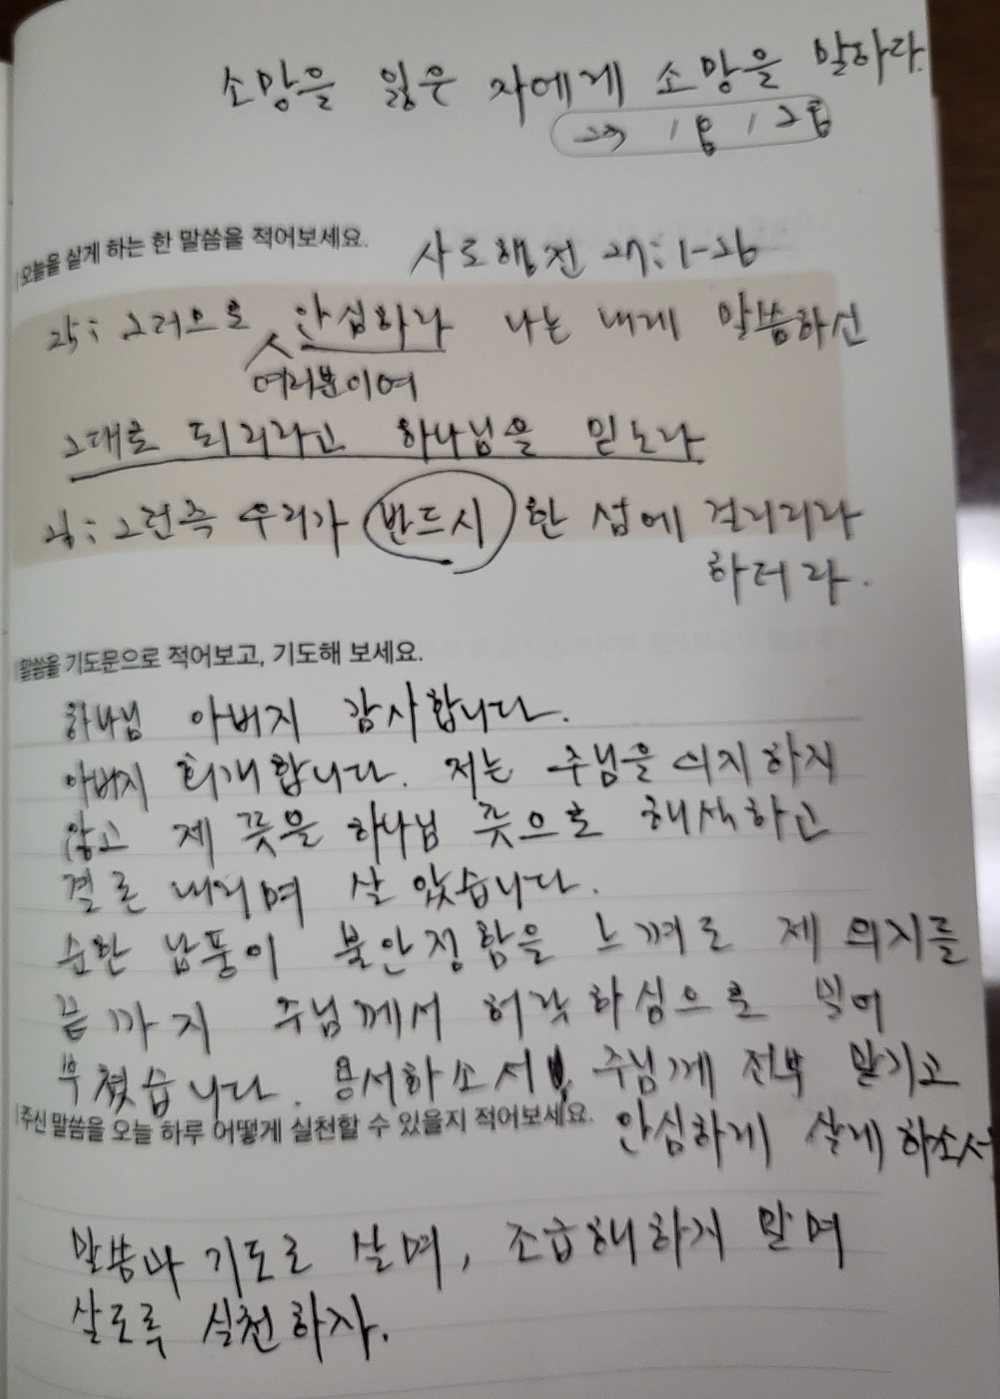 소망을 잃은 자에게 소망을 말하라.
오늘을 살게 하는 한 말씀을 적어보세요.
사도행전 27:1-26
25: 그러므로 안심하라 나는 내게 말씀하신
여러분이여
그대로 되리라고 하나님을 믿노라
26: 그런즉 우리가 반드시 한 섬에 걸리리라
하더라.
말씀을 기도문으로 적어보고, 기도해 보세요.
하나님 아버지 감사합니다.
아버지 회개합니다. 저는 주님을 의지하지
않고 제 뜻을 하나님 뜻으로 해석하고
결론 내리며 살았습니다.
순한 남풍이 불안정함을 느껴도 제 의지를
끝까지 주님께서 허락하심으로
부쳤습니다. 용서하소서 주님께 전부 맡기고
주신 말씀을 오늘 하루 어떻게 실천할 수 있을지 적어보세요.
안심하게 살게 하소서
말씀과 기도로 살며, 조급해하지 말며
살도록 실천하자.